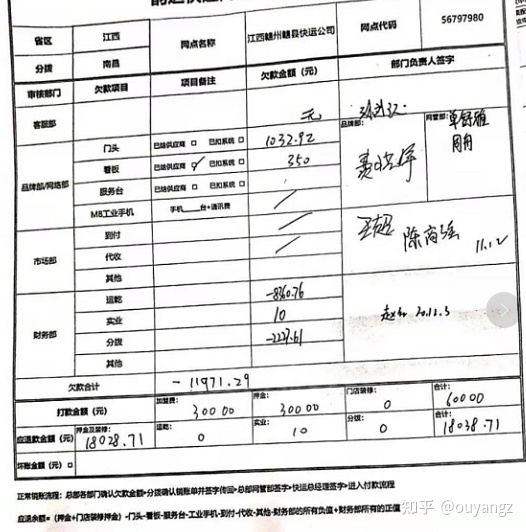 省区 江西 网点名称 江西赣州赣县快运公司 网点代码 56797980
分拨 南昌
审核部门 欠款项目 项目备注 欠款金额（元） 部门负责人签字
客服部 无
品牌部/网络部 门头 已给供应商 □ 已扣系统 □ 1032.92 品牌部: 网管部:
看板 已给供应商 ☑ 已扣系统 □ 350
服务台 已给供应商 □ 已扣系统 □
M8工业手机 手机____台+通讯费
市场部 到付
代收 11.12
其他
财务部 运乾 -8360.76
实业 10
分拨 -2227.61
其他
欠款合计 -11971.29
打款金额（元） 加盟费: 30000 押金: 30000 门店装修: 0 合计: 60000
应退款金额（元） 押金及装修: 18028.71 运乾: 0 实业: 10 分拨: 0 合计: 18038.71
坏账金额（元） □
正常销账流程：总部各部门确认欠款金额>分拨确认销账单并签字传回>总部网管部签字>快运总经理签字>进入付款流程
应退余额=（押金+门店装修押金）-门头-看板-服务台-工业手机-到付-代收-其他-财务部的所有负值+财务部所有的正值
知乎 @ouyangz